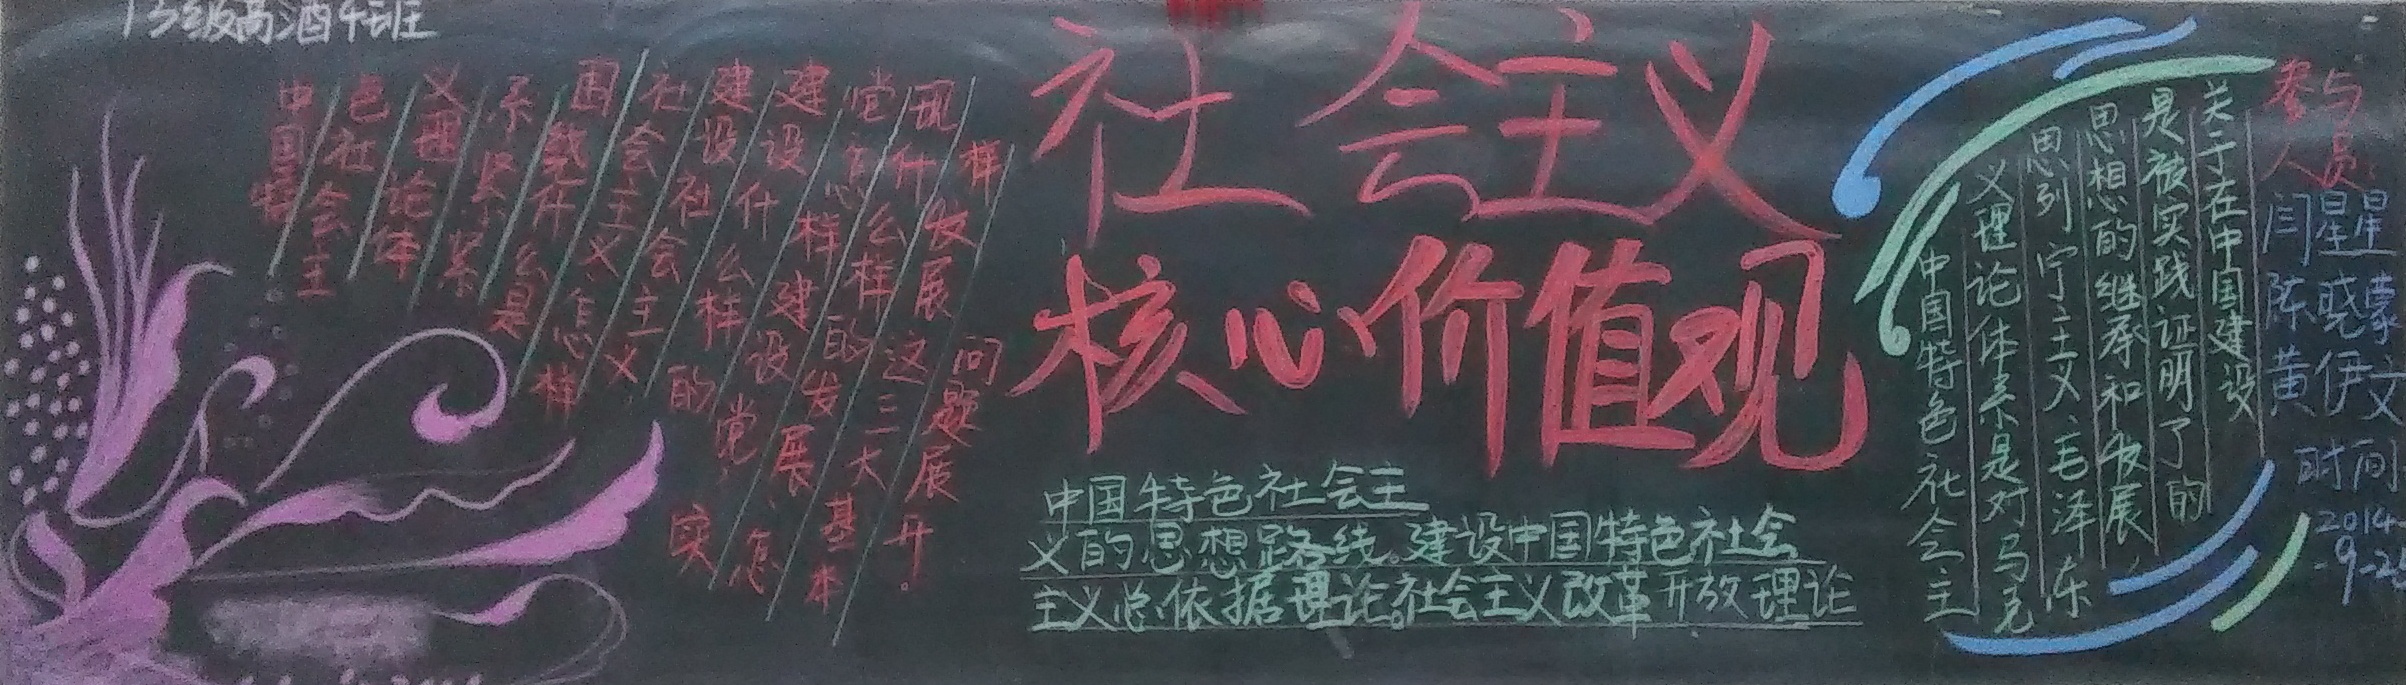 13级高酒4班
中国特
色社会主
义理论体
系紧紧
围繞什么是
社会主义怎样
建设社会主义
建设什么样的
党怎样建设党实
现什么样的发展怎
样发展这三大基本
问题展开。
社会主义
核心价值观
中国特色社会主
义的思想路线。建设中国特色社会
主义总依据理论。社会主义改革开放理论
中国特色社会主
义理论体系是对马克
思列宁主义、毛泽东
思想的继承和发展,
是被实践证明了的
关于在中国建设
参与
人员
闫星星
陈晓蒙
黄伊文
时间
2014